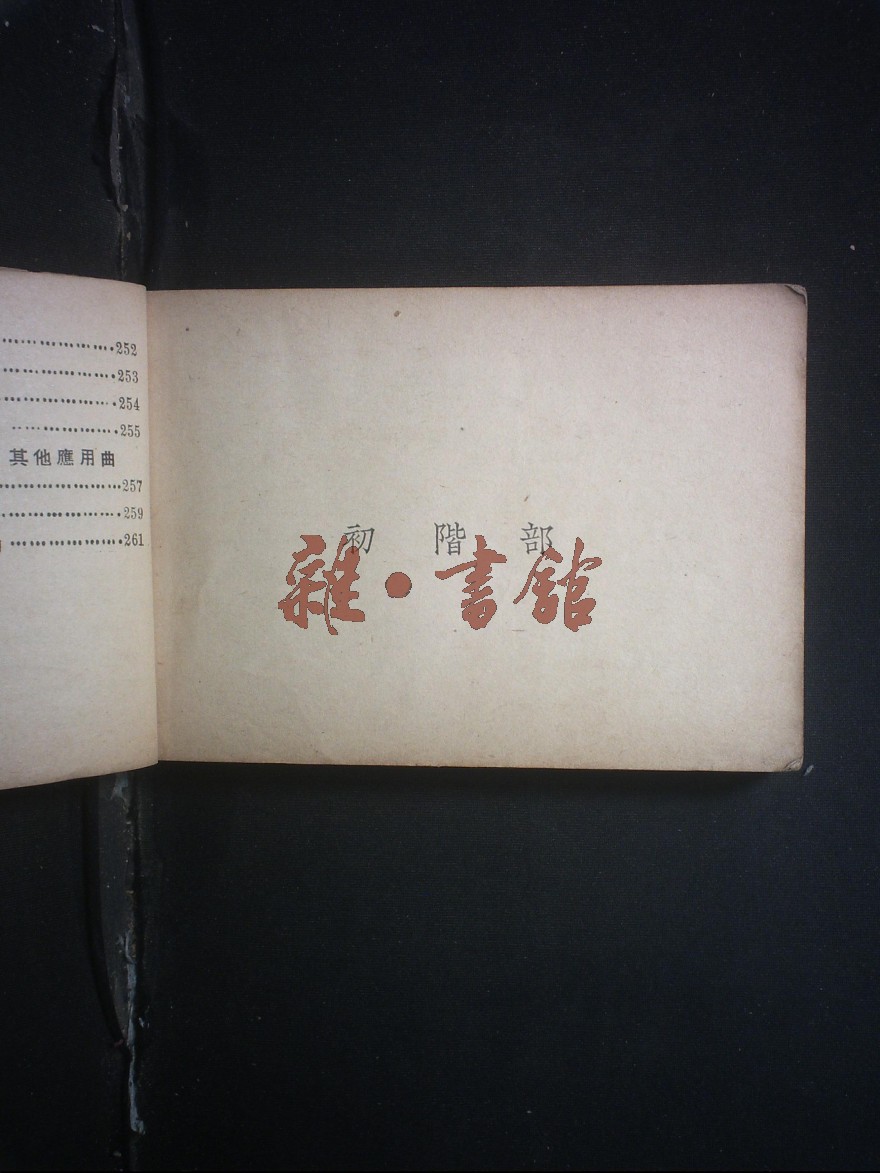 ………………252
………………253
………………254
………………255
其他應用曲
………………257
………………259
………………261
初階部
雜·書館